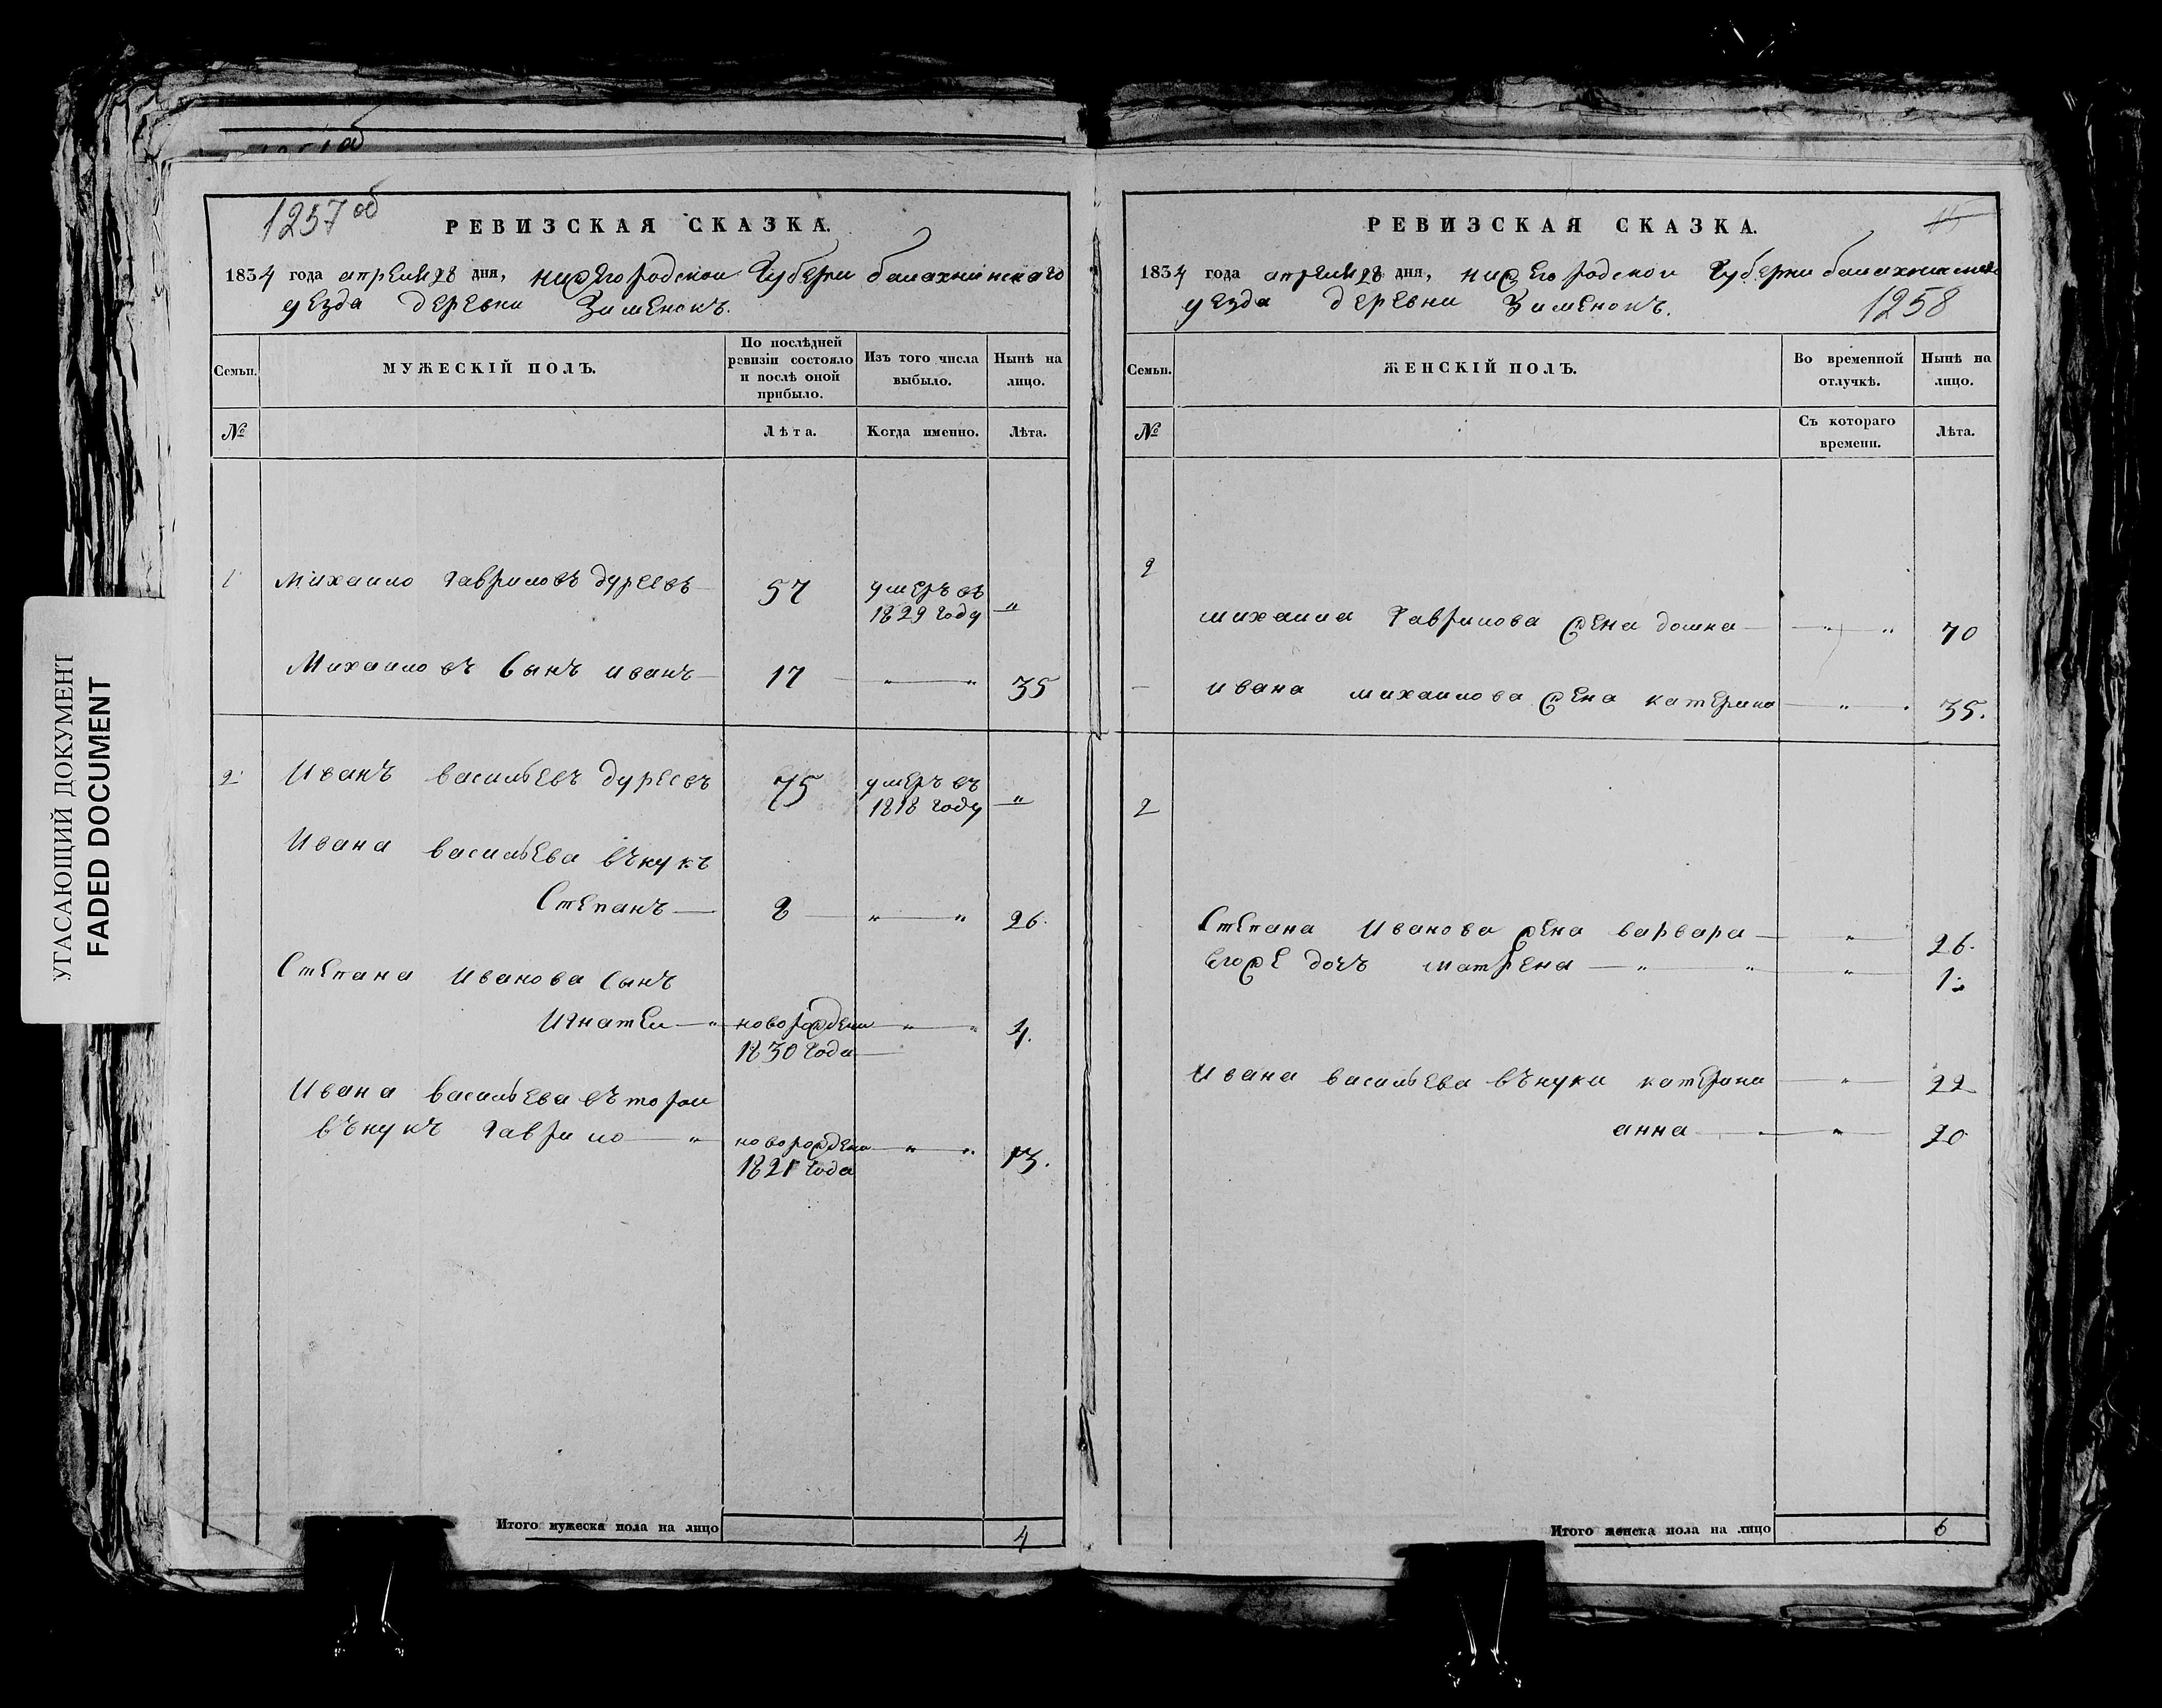 УГАСАЮЩИЙ ДОКУМЕНТ
FADED DOCUMENT
1257 об
РЕВИЗСКАЯ СКАЗКА.
1834 года апреля 28 дня, нижегородской Губерни балахнинскаго
уезда деревни Зименокъ.
Семьи. МУЖЕСКІЙ ПОЛЪ. По послѣдней ревизіи состояло и послѣ оной прибыло. Изъ того числа выбыло. Нынѣ на лицо.
№ Лѣта. Когда именно. Лѣта.
1 Михаило Гавриловъ дуреевъ 57 умеръ въ 1829 году "
Михаиловъ Сынъ иванъ 17 " " 35
2 Иванъ васильевъ дуреевъ 75 умеръ въ 1818 году "
Ивана васильева вънукъ
Степанъ 8 " " 26.
Степана Иванова Сынъ
Игнатеи " новорожденъ " " 4.
1830 года
Ивана васильева въторои
вънукъ Гаврило " новорожденъ " " 13.
1821 года
Итого мужеска пола на лицо 4
РЕВИЗСКАЯ СКАЗКА.
1834 года апреля 28 дня, нижегородской Губерни балахнинскаго
уезда деревни Зименокъ. 1258
Семьи. ЖЕНСКІЙ ПОЛЪ. Во временной отлучкѣ. Нынѣ на лицо.
№ Съ котораго времени. Лѣта.
михаила Гаврилова жена домна " " 70
ивана михаилова жена катерина " 35.
2
Степана Иванова жена варвара " 26.
Егоже дочъ матрена " " " 1.
Ивана васильева вънуки катерина " 22
анна " " 20
Итого женска пола на лицо 6